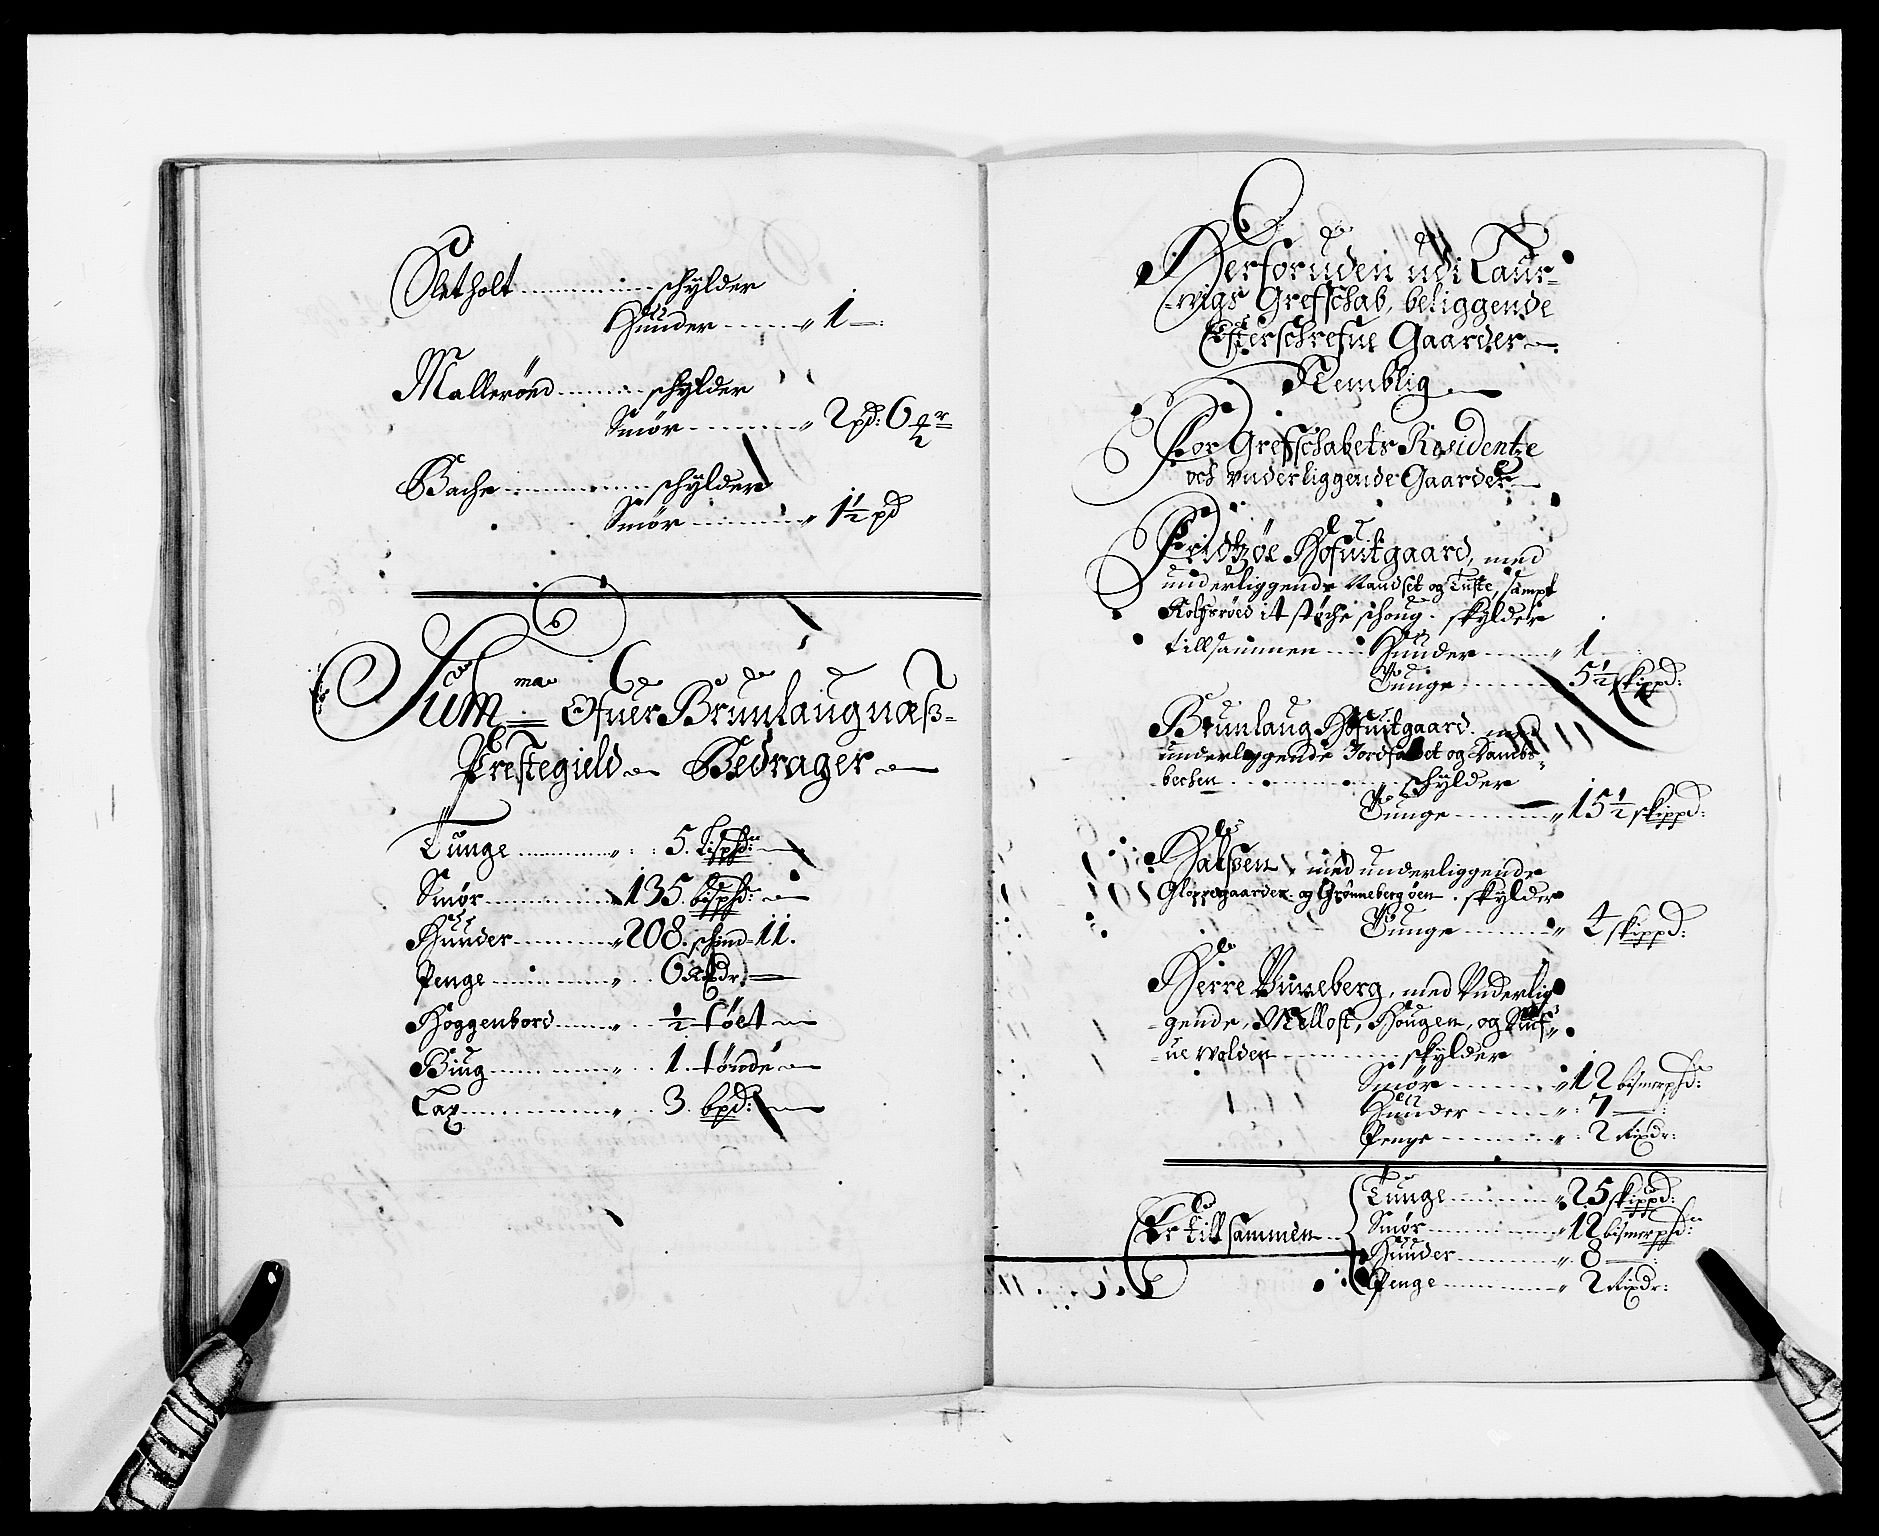 Sletholt ............ schylder
Huuder ....... „ 1 —:
Malleröed ........ schylder
Smör ......... „ 2 pd: 6 mr
Bache ............ schylder
Smör ......... „ 1½ pd
Sum̄ma Ofuer Brunlaugnæß-
Prestegield Bedrager
Tunge ......... „ .. 5. Lispd:
Smör ......... „ 135. bispd:
Huuder ......... „ 208. schind 11.
Penge ......... „ .. 6 Rixdr.
Hoggenbord ....... „ .. ½ tölt
Biug ......... „ .. 1. tönde
Lax ......... „ .. 3. bpd:
Herforuden udi Laur-
-wigs Grefschab, beliggende
Efterschrefne Gaarder
Nemblig
For Grefschabets Residentze
och vnderliggende Gaarder
Fridtzöe Hofuitgaard, med
underliggende Vandset og Tufte, sampt
it støche schoug. skylder
tillsammen .... Huuder ...... „ 1 —:
Tunge ...... 5½ skippd:
Brunlaug Hofuitgaard. med
underliggende Jordfaldet og
bechen ............ schylder
Tunge ......... „ 15½ skippd:
Halßen, med underliggende
Gloppegaarden og Grønneberg öen. skylder
Tunge ......... „ 4 skippd:
Herre med Vnderlig
-gende, Mellost, Hougen, og
-ue wolden ......... skylder
Smör ....... „ 12 bismerpd:
Huuder ...... „ . 7 —:
Penge ........ „ . 2 Rixdr:
Er tillsammen
Tunge ......... „ 25 skippd:
Smör ......... „ 12 bismerpd:
Huuder ......... „ . 8 —:
Penge ......... „ . 2 Rixdr: